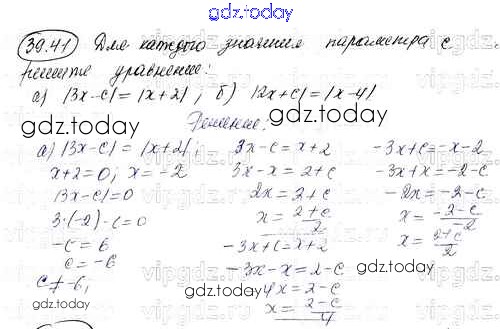 gdz.today
39.41 Для каждого значения параметра c
решите уравнение:
а) |3x-c|=|x+2|; б) |2x+c|=|x-4|
gdz.today
Решение:
а) |3x-c|=|x+2|;
x+2=0; x=-2
|3x-c|=0
3·(-2)-c=0
-c=6
c=-6
c≠-6,
3x-c=x+2
3x-x=2+c
2x=2+c
x=2+c/2
-3x+c=x+2
-3x-x=2-c
-4x=2-c
x=2-c/4
-3x+c=-x-2
-3x+x=-2-c
-2x=-2-c
x=-2-c/-2
x=2+c/2
gdz.today
gdz.today
gdz.today
gdz.today